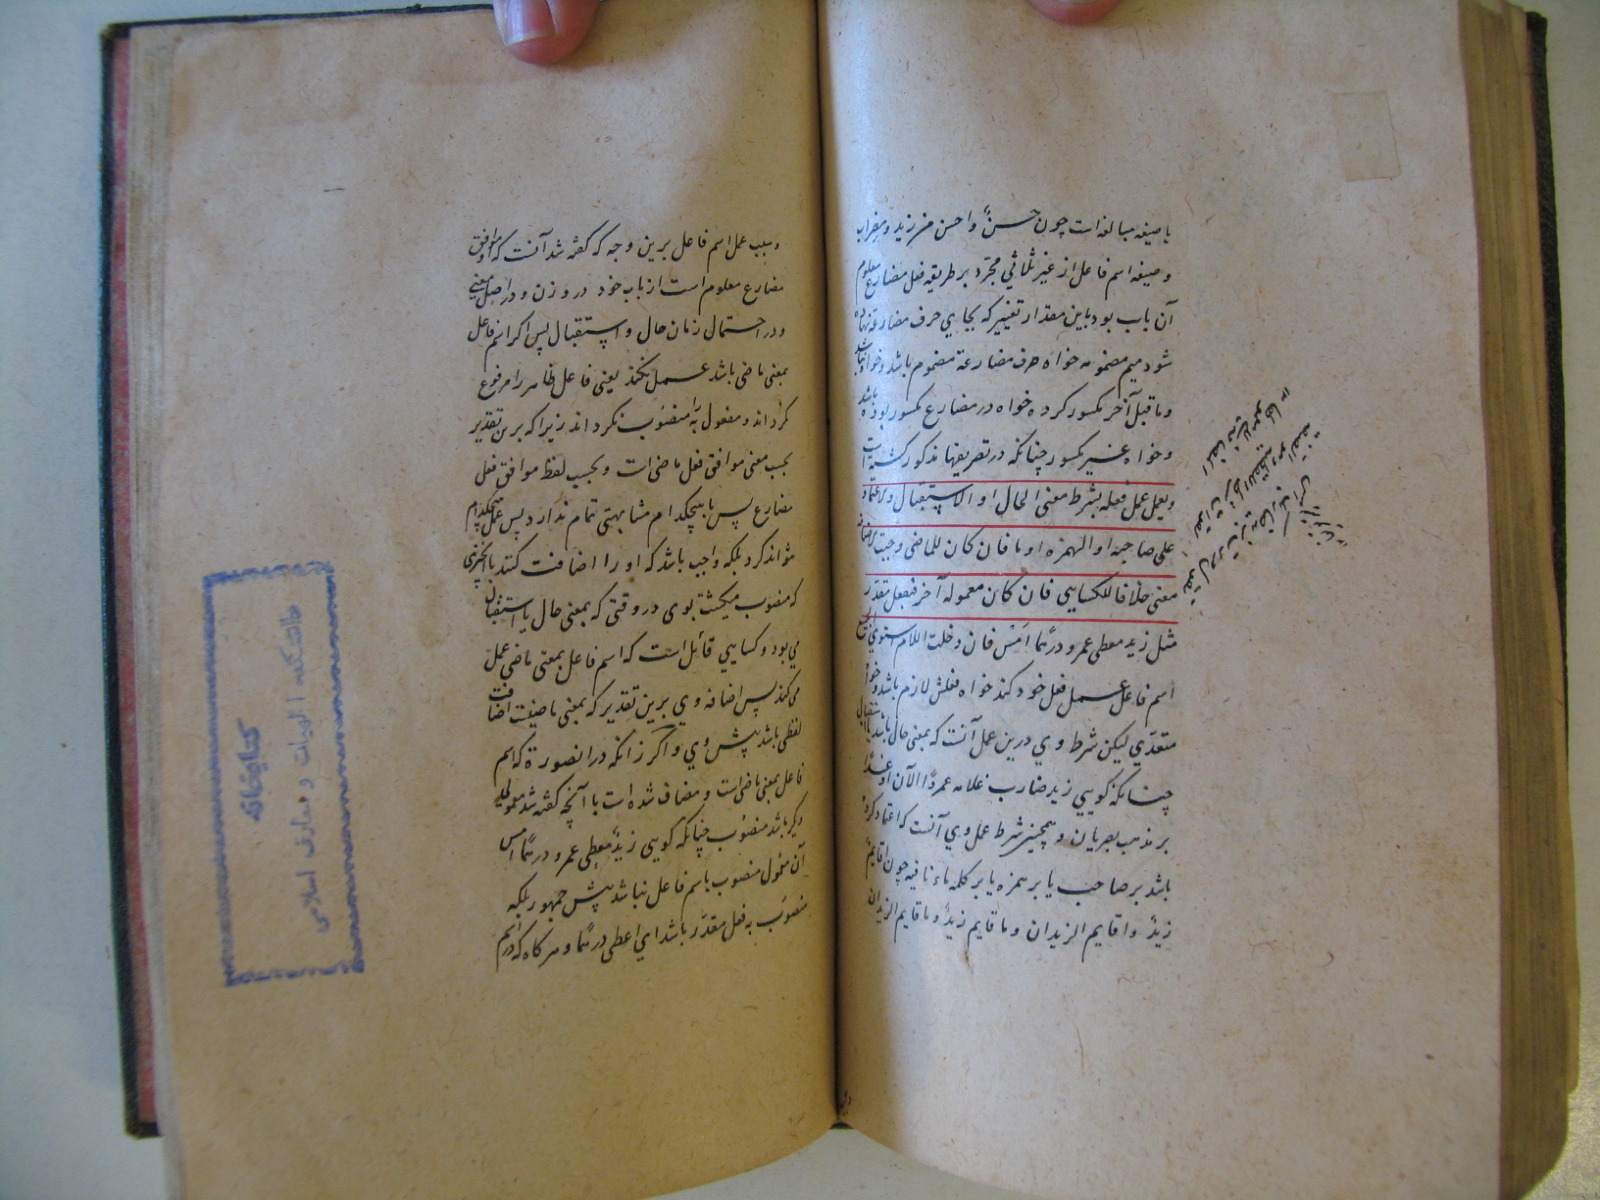 یا صیغه مبالغه است چون حسنٌ و احسن من زید و مضراب
و صیغه اسم فاعل از غیر ثلاثی مجرد بر طریقه فعل مضارع معلوم
آن باب بود باین مقدار تغییر که بجایی حرف مضارعة نهاده
شود میم مضمومه خواه حرف مضارعة مضموم باشد و خواه نباشد
و ما قبل آخر مکسور کرده خواه در مضارع مکسور بوده باشد
و خواه غیر مکسور چنانکه در تصریفها مذکور گشته است
و یعمل عمل فعله بشرط معنی الحال او الاستقبال و الاعتماد
علی صاحبه او الهمزه او ما فان کان للماضی وجبت الاضافة
معنی خلافا للکسایی فان کان معموله آخر فبفعل مقدر
مثل زید معطی عمرو درهما امس فان دخلت اللام استوی الجمیع
اسم فاعل عمل فعل خود کند خواه فعلش لازم باشد و خواه
متعدّی لیکن شرط وی درین عمل آنست که بمعنی حال باشد یا استقبال
چنانکه گویی زید ضارب غلامه عمرواً الآن او غداً
بر مذهب بصریان و همچنین شرط عمل وی آنست که اعتماد کرده
باشد بر صاحب یا بر همزه یا بر کلمه ماء نافیه چون اقایم
زیدٌ و اقایم الزیدان و ما قایم زیدٌ و ما قایم الزیدان
و سبب عمل اسم فاعل برین وجه که گفته شد آنست که او موافق
مضارع معلوم است از باب خود در وزن و در اصل معنی
و در احتمال زمان حال و استقبال پس اگر اسم فاعل
بمعنی ماضی باشد عمل نکند یعنی فاعل ظاهر را مرفوع
گرداند و مفعول به را منصوب نگرداند زیرا که برین تقدیر
بحسب معنی موافق فعل ماضی است و بحسب لفظ موافق فعل
مضارع پس با هیچکدام مشابهتی تمام ندارد پس عمل هیچکدام
نتواند کرد بلکه واجب باشد که او را اضافت کنند با آنچیزی
که منصوب میگشت بوی در وقتی که بمعنی حال یا استقبال
می بود و کسایی قائل است که اسم فاعل بمعنی ماضی عمل
می کند پس اضافه وی برین تقدیر که بمعنی ماضیست اضافت
لفظی باشد پیش وی و اگر زانکه در انصورة که اسم
فاعل بمعنی ماضی است و مضاف شده است با آنچه گفته شد معمولی
دیگر باشد منصوب چنانکه گویی زیدٌ معطی عمرو درهماً امس
آن معمول منصوب باسم فاعل نباشد پیش جمهور بلکه
منصوب به فعل مقدر باشد ای اعطی درهما و هر گاه که در اسم
کتابخانه
دانشکده الهیات و معارف اسلامی